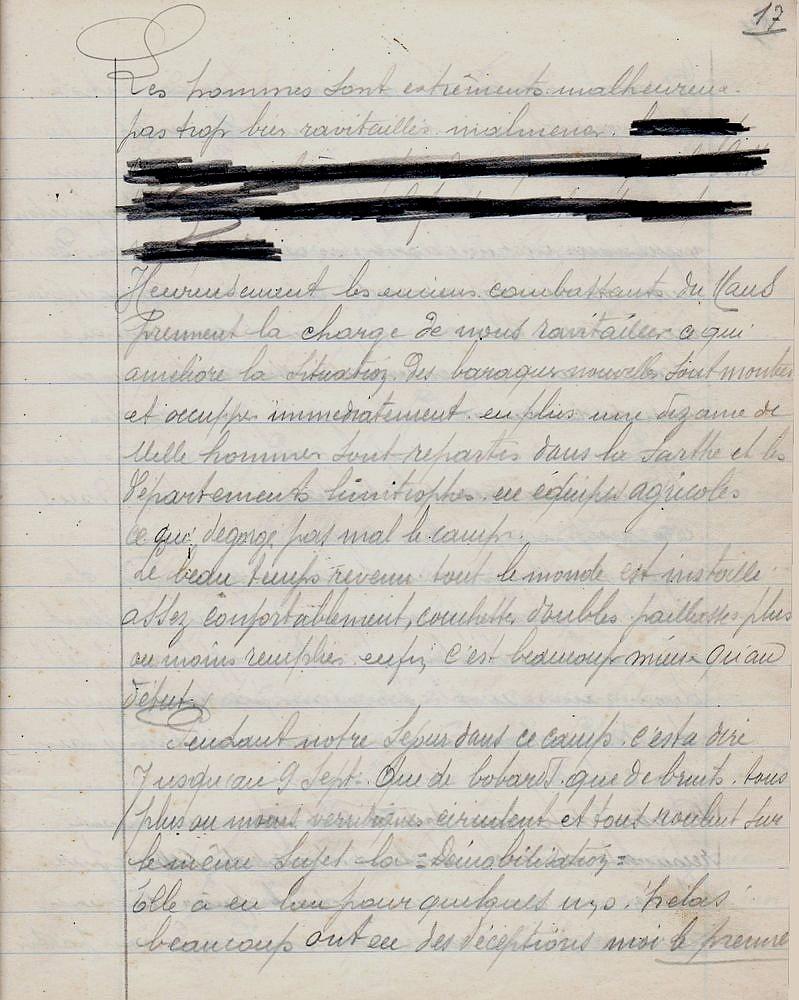 17
Les hommes sont extrêments malheureux
pas trop bien ravitaillés malmener.
Heureusement les anciens combattants du Mans
Prennent la charge de nous ravitailler ce qui
améliore la situation. Des baraques nouvelles sont montées
et occuppés immediatement. en plus une dizaine de
Mille hommes sont repartis dans la Sarthe et les
départements limitrophes en équipes agricoles
ce qui degorge pas mal le camp.
Le beau temps revenu tout le monde est installé
assez confortablement, couchettes doubles paillasses plus
ou moins remplies enfin c'est beaucoup mieux qu'au
début.
Pendant notre Sejour dans ce camp. c'est a dire
Jusqu'au 9 Sept. Que de bobards. que de bruits. tous
plus ou moins circulent et tous roulent sur
le même Sujet la = Démobilisation =
Elle à eu lieu pour quelques uns. hélas
beaucoup ont eu des déceptions moi le premier